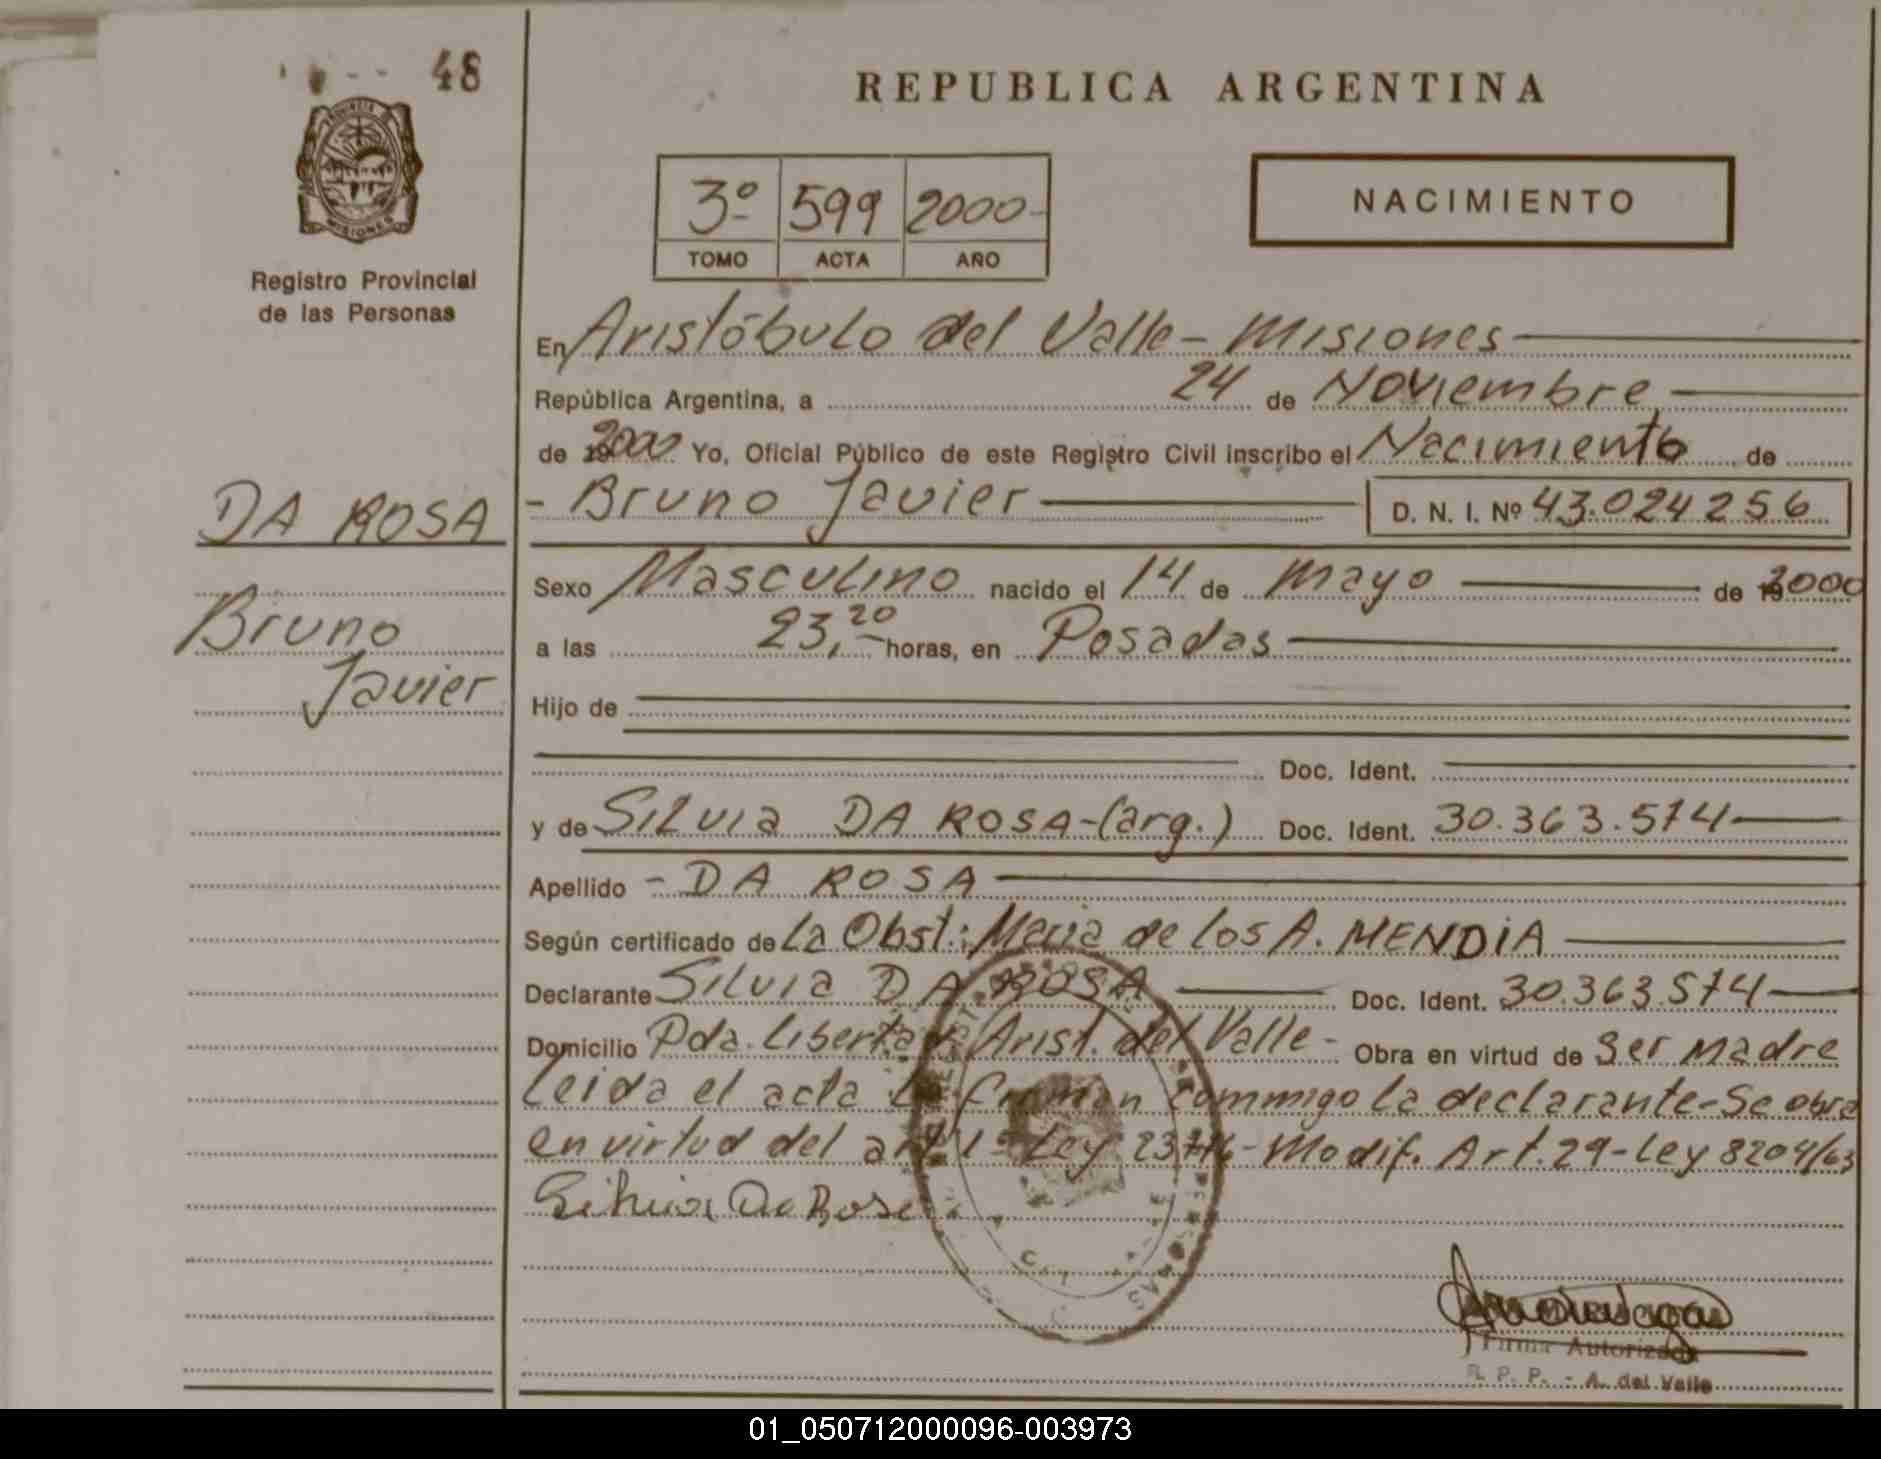 48
PROVINCIA DE
MISIONES
Registro Provincial
de las Personas
DA ROSA
Bruno
Javier
REPUBLICA ARGENTINA
3º 599 2000-
TOMO ACTA AÑO
NACIMIENTO
En Aristóbulo del Valle - Misiones
República Argentina, a 24 de Noviembre
de 2000 Yo, Oficial Público de este Registro Civil inscribo el Nacimiento de
- Bruno Javier D. N. I. Nº 43.024256
Sexo Masculino nacido el 14 de Mayo de 2000
a las 23,20 horas, en Posadas
Hijo de
Doc. Ident.
y de Silvia DA ROSA-(arg.) Doc. Ident. 30.363.574
Apellido - DA ROSA
Según certificado de La Obst.: Maria de Los A. MENDIA
Declarante Silvia DA ROSA Doc. Ident. 30.363.574
Domicilio Pda. Libertad Arist. del Valle- Obra en virtud de Ser Madre
Leida el acta La firman commigo la declarante-Se obra
en virtud del art 1º Ley 23.776-Modif. Art.29-Ley 8204/63
Silvia Da Rosa
Firma Autorizada
R. P. P. - A. del Valle
01_050712000096-003973